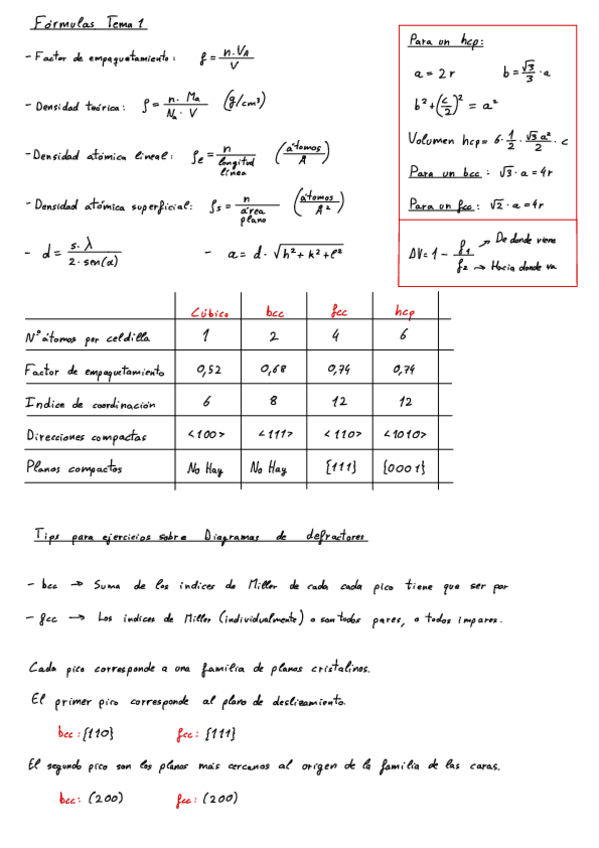 Fórmulas Tema 1
- Factor de empaquetamiento: f = n·VA / V
- Densidad teórica: ρ = n·Ma / Na·V (g/cm³)
- Densidad atómica lineal: ρe = n / longitud línea (átomos / Å)
- Densidad atómica superficial: ρs = n / área plano (átomos / Å²)
- d = s·λ / 2·sen(α) - a = d·√h²+k²+l²
Para un hcp:
a = 2r b = √3/3 · a
b² + (c/2)² = a²
Volumen hcp = 6·1/2·√3 a²/2·c
Para un bcc: √3·a = 4r
Para un fcc: √2·a = 4r
ΔV = 1 - f1 / f2
→ De donde viene
→ Hacia donde va
Cúbico bcc fcc hcp
Nº átomos por celdilla 1 2 4 6
Factor de empaquetamiento 0,52 0,68 0,74 0,74
Indice de coordinación 6 8 12 12
Direcciones compactas <100> <111> <110> <1010>
Planos compactos No Hay No Hay {111} {0001}
Tips para ejercicios sobre Diagramas de defractores
- bcc → Suma de los indices de Miller de cada cada pico tiene que ser par
- fcc → Los indices de Miller (individualmente) o son todos pares, o todos impares.
Cada pico corresponde a una familia de planos cristalinos.
El primer pico corresponde al plano de deslizamiento.
bcc: {110} fcc: {111}
El segundo pico son los planos más cercanos al origen de la familia de las caras.
bcc: (200) fcc: (200)